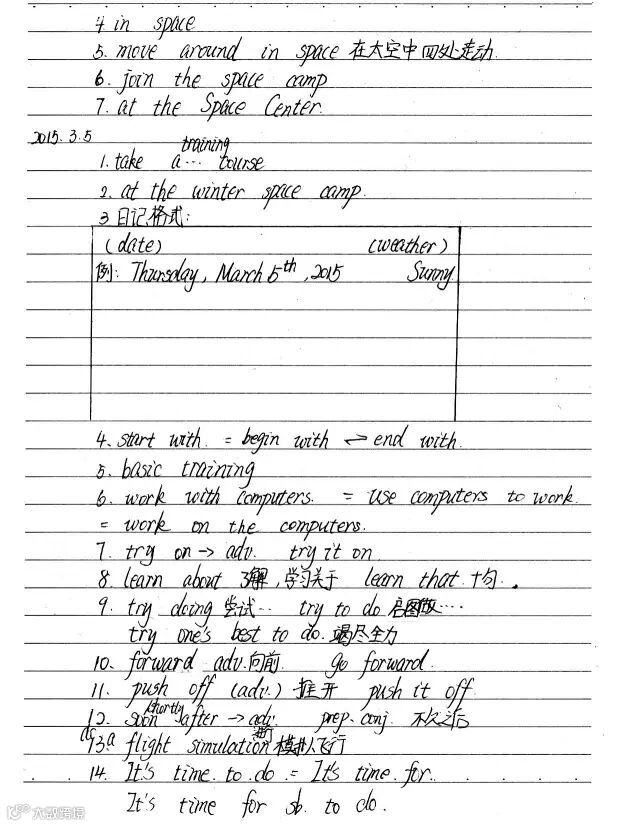 4. in space
5. move around in space 在太空中四处走动
6. join the space camp
7. at the Space Center.
2015.3.5
training
1. take a... course
2. at the winter space camp.
3 日记格式:
(date) (weather)
例: Thursday, March 5th, 2015 Sunny
4. start with. = begin with ⇌ end with.
5. basic training
6. work with computers. = use computers to work.
= work on the computers.
7. try on → adv. try it on.
8. learn about 了解, 学习关于 learn that +句.
9. try doing 尝试.. try to do 企图做....
try one's best to do. 竭尽全力
10. forward adv. 向前. go forward.
11. push off (adv.) 推开 push it off
shortly
12. soon after → adv. prep. conj. 不久之后
do
13. a flight simulation 模拟飞行
14. It's time. to do. = It's time. for..
It's time for sb. to do.
大数跨境